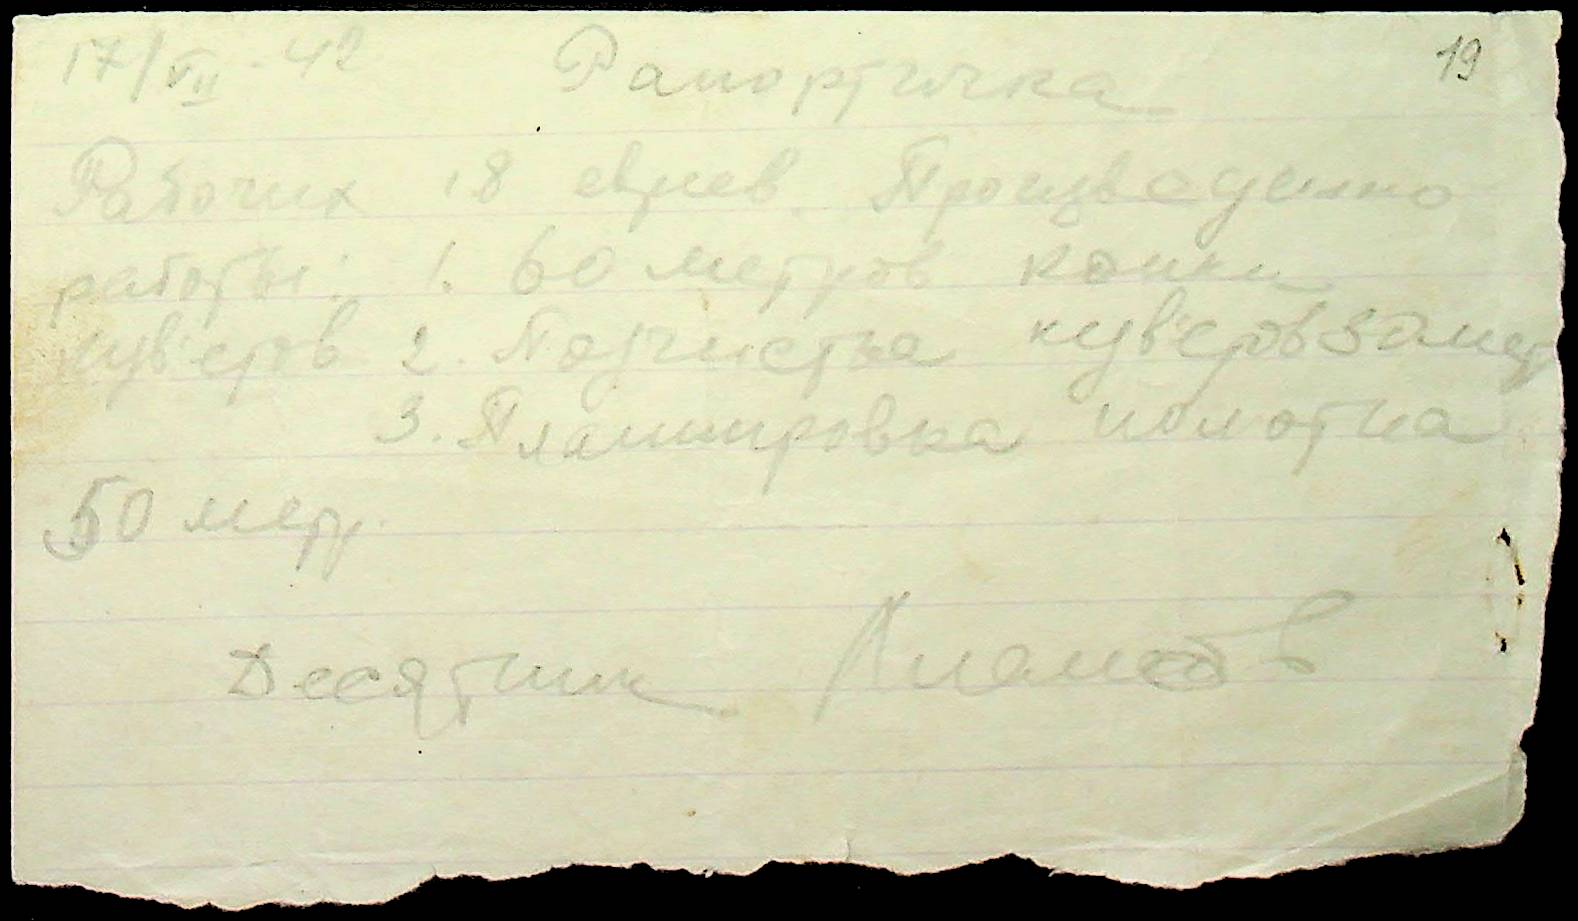 17/VII-42 Рапортичка 19
Рабочих 18 евреев. Произведенно
работы: 1. 60 метров копки
кув'етов 2. Подчистка кув'етов 30 метр
3. Планировка полотна
50 метр.
Десятник